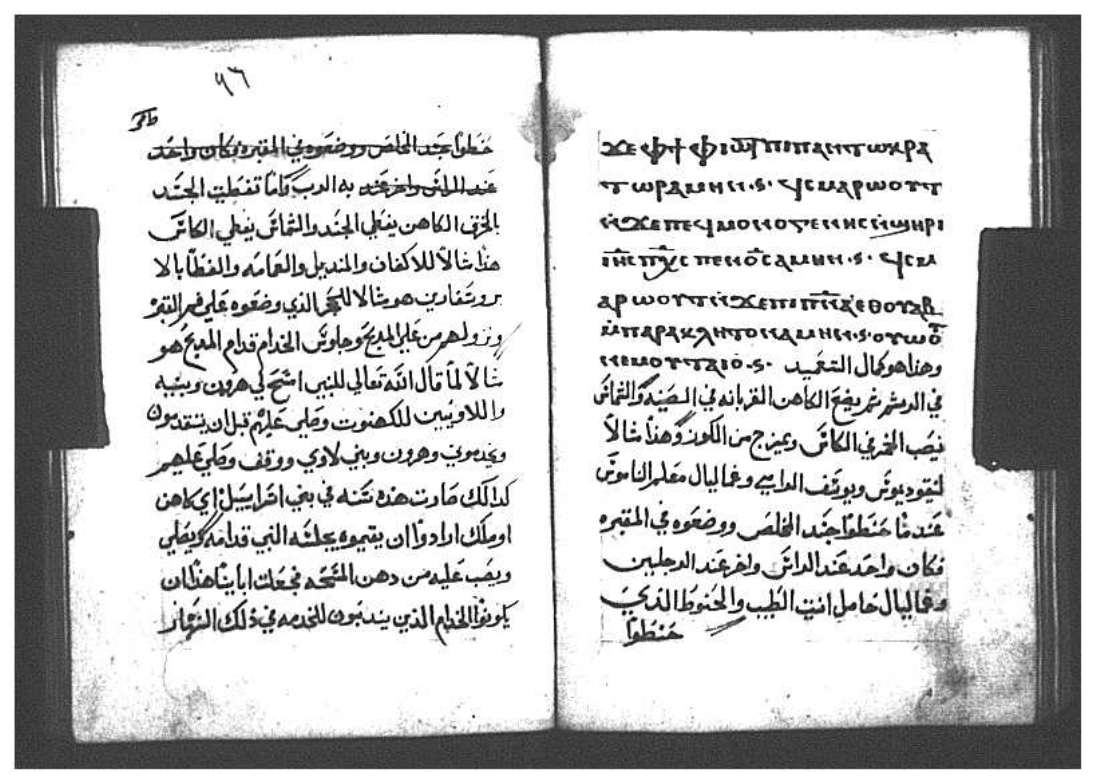 ϫⲉ ⲫϯ ⲫⲓⲱⲧ ⲡⲓⲡⲁⲛⲧⲱⲕⲣⲁ
ⲧⲱⲣ ⲁⲙⲏⲛ ·ⲋ· ϥⲥⲙⲁⲣⲱⲟⲩⲧ
ⲛ̀ϫⲉ ⲡⲉϥⲙⲟⲛⲟⲅⲉⲛⲏⲥ ⲛ̀ϣⲏⲣⲓ
ⲓⲏⲥ ⲡⲭⲥ ⲡⲉⲛⲟⲥ ⲁⲙⲏⲛ ·ⲋ· ϥⲥⲙ
ⲁⲣⲱⲟⲩⲧ ⲛ̀ϫⲉ ⲡⲓⲡⲛⲁ ⲉⲑⲟⲩⲁⲃ
ⲙ̀ⲡⲁⲣⲁⲕⲗⲏⲧⲟⲛ ⲁⲙⲏⲛ ·ⲋ· ⲟⲩⲱⲟⲩ
ⲛⲉⲙ ⲟⲩⲧⲁⲓⲟ ·ⲋ· وهذا هو كمال التقميد
في الرشم ثم يضع الكاهن القربانه في الصينيه والشماس
يصب الخمر في الكاس ويمزج من الكوز وهذا مثالاً
لنيقوديموس ويوسف الرامي وغماليال معلم الناموس
عندما حنطوا جسد المخلص ووضعوه في المقبره
فكان واحد عند الراس واخر عند الرجلين
وغماليال حامل انيه الطيب والحنوط الذي
حنطوا
٩٦
حنطوا جسد المخلص ووضعوه في المقبره فكان واحد
عند الراس واخر عند به الرب واما تغطيت الجسد
بالخرق الكاهن يغطي الجسد والشماس يغطي الكاس
هذا مثالاً للاكفان والمنديل والعمامه والغطا بالا
بروسفارين هو مثالا للحجر الذي وضعوه علي فم القبر
ونزولهم من علي المدبح وجلوس الخدام قدام المدبح هو
مثالاً لما قال الله تعالي للنبي امسح لي هرون وبنيه
واللاويين للكهنوت وصلي عليهم قبل ان يتقدمون
ويخدموني وهرون وبني لاوي ووقف وصلي عليهم
كدالك صارت هذه سنه في بني اسراييل اي كاهن
او ملك ارادوا ان يقيموه يجلسه النبي قدامه ويصلي
ويصب عليه من دهن المسحه فجعلت ابايتنا هذا ان
يكونوا الخدام الذين يندبون للخدمه في ذلك النهار